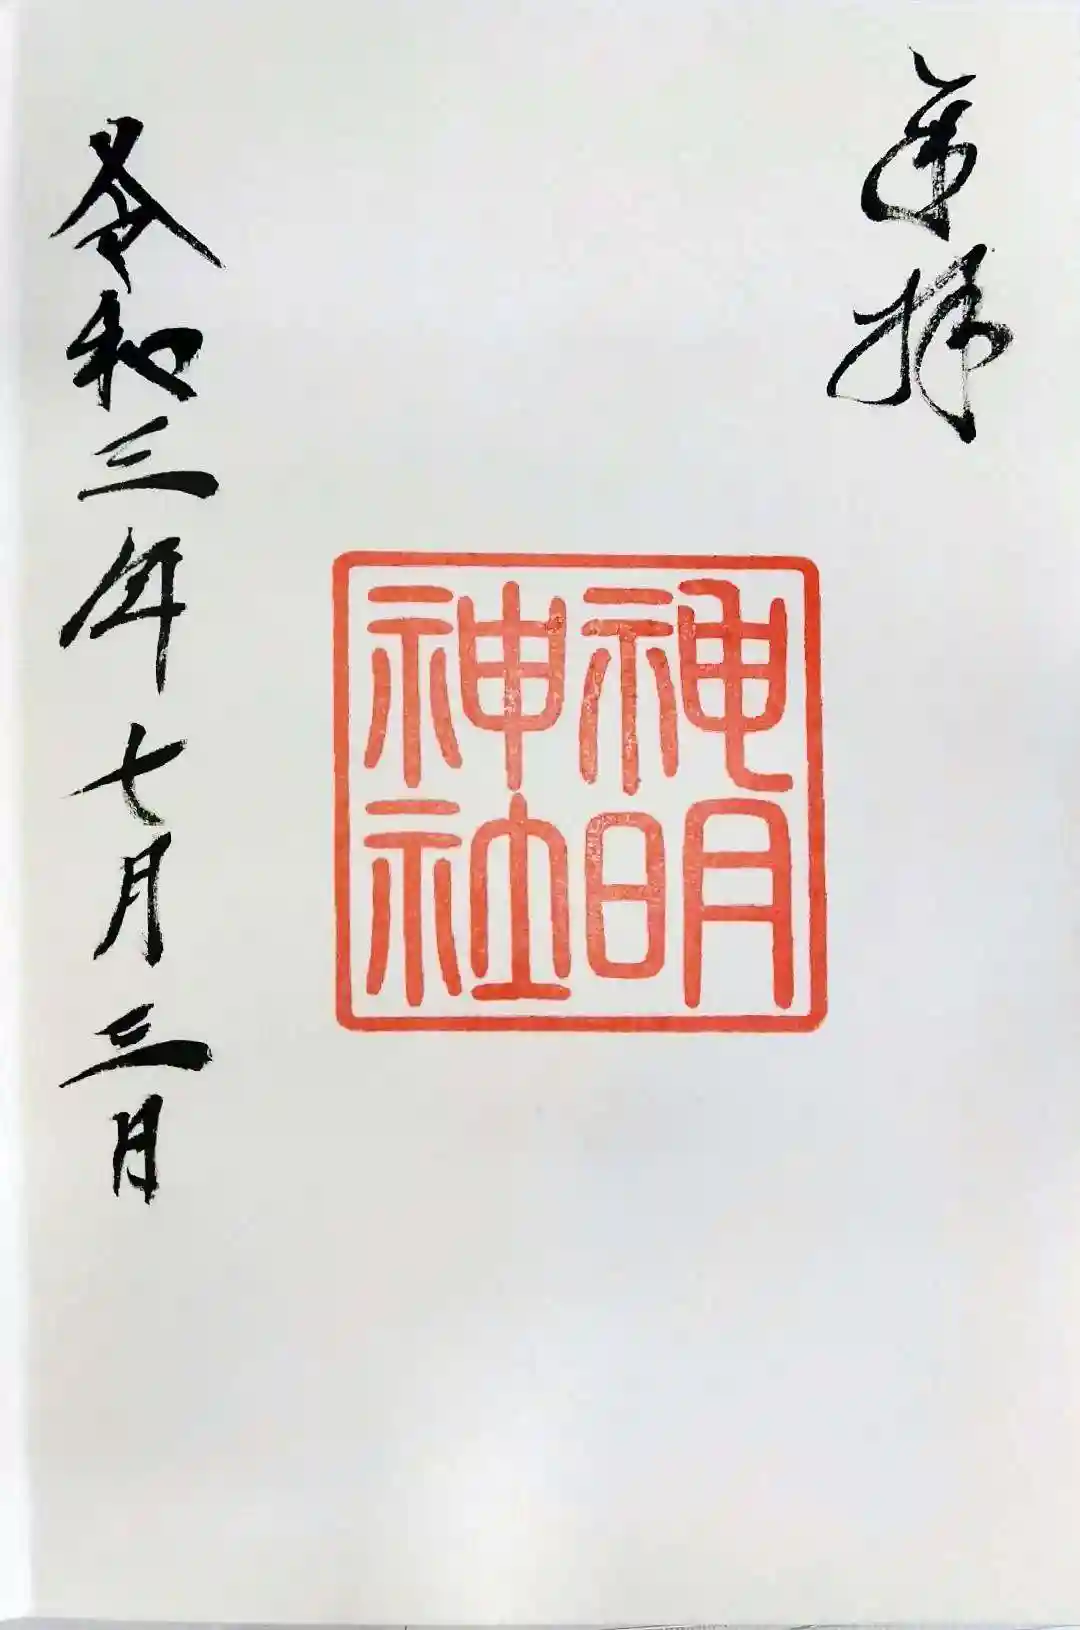 奉拝
神明
神社
令和三年七月三日